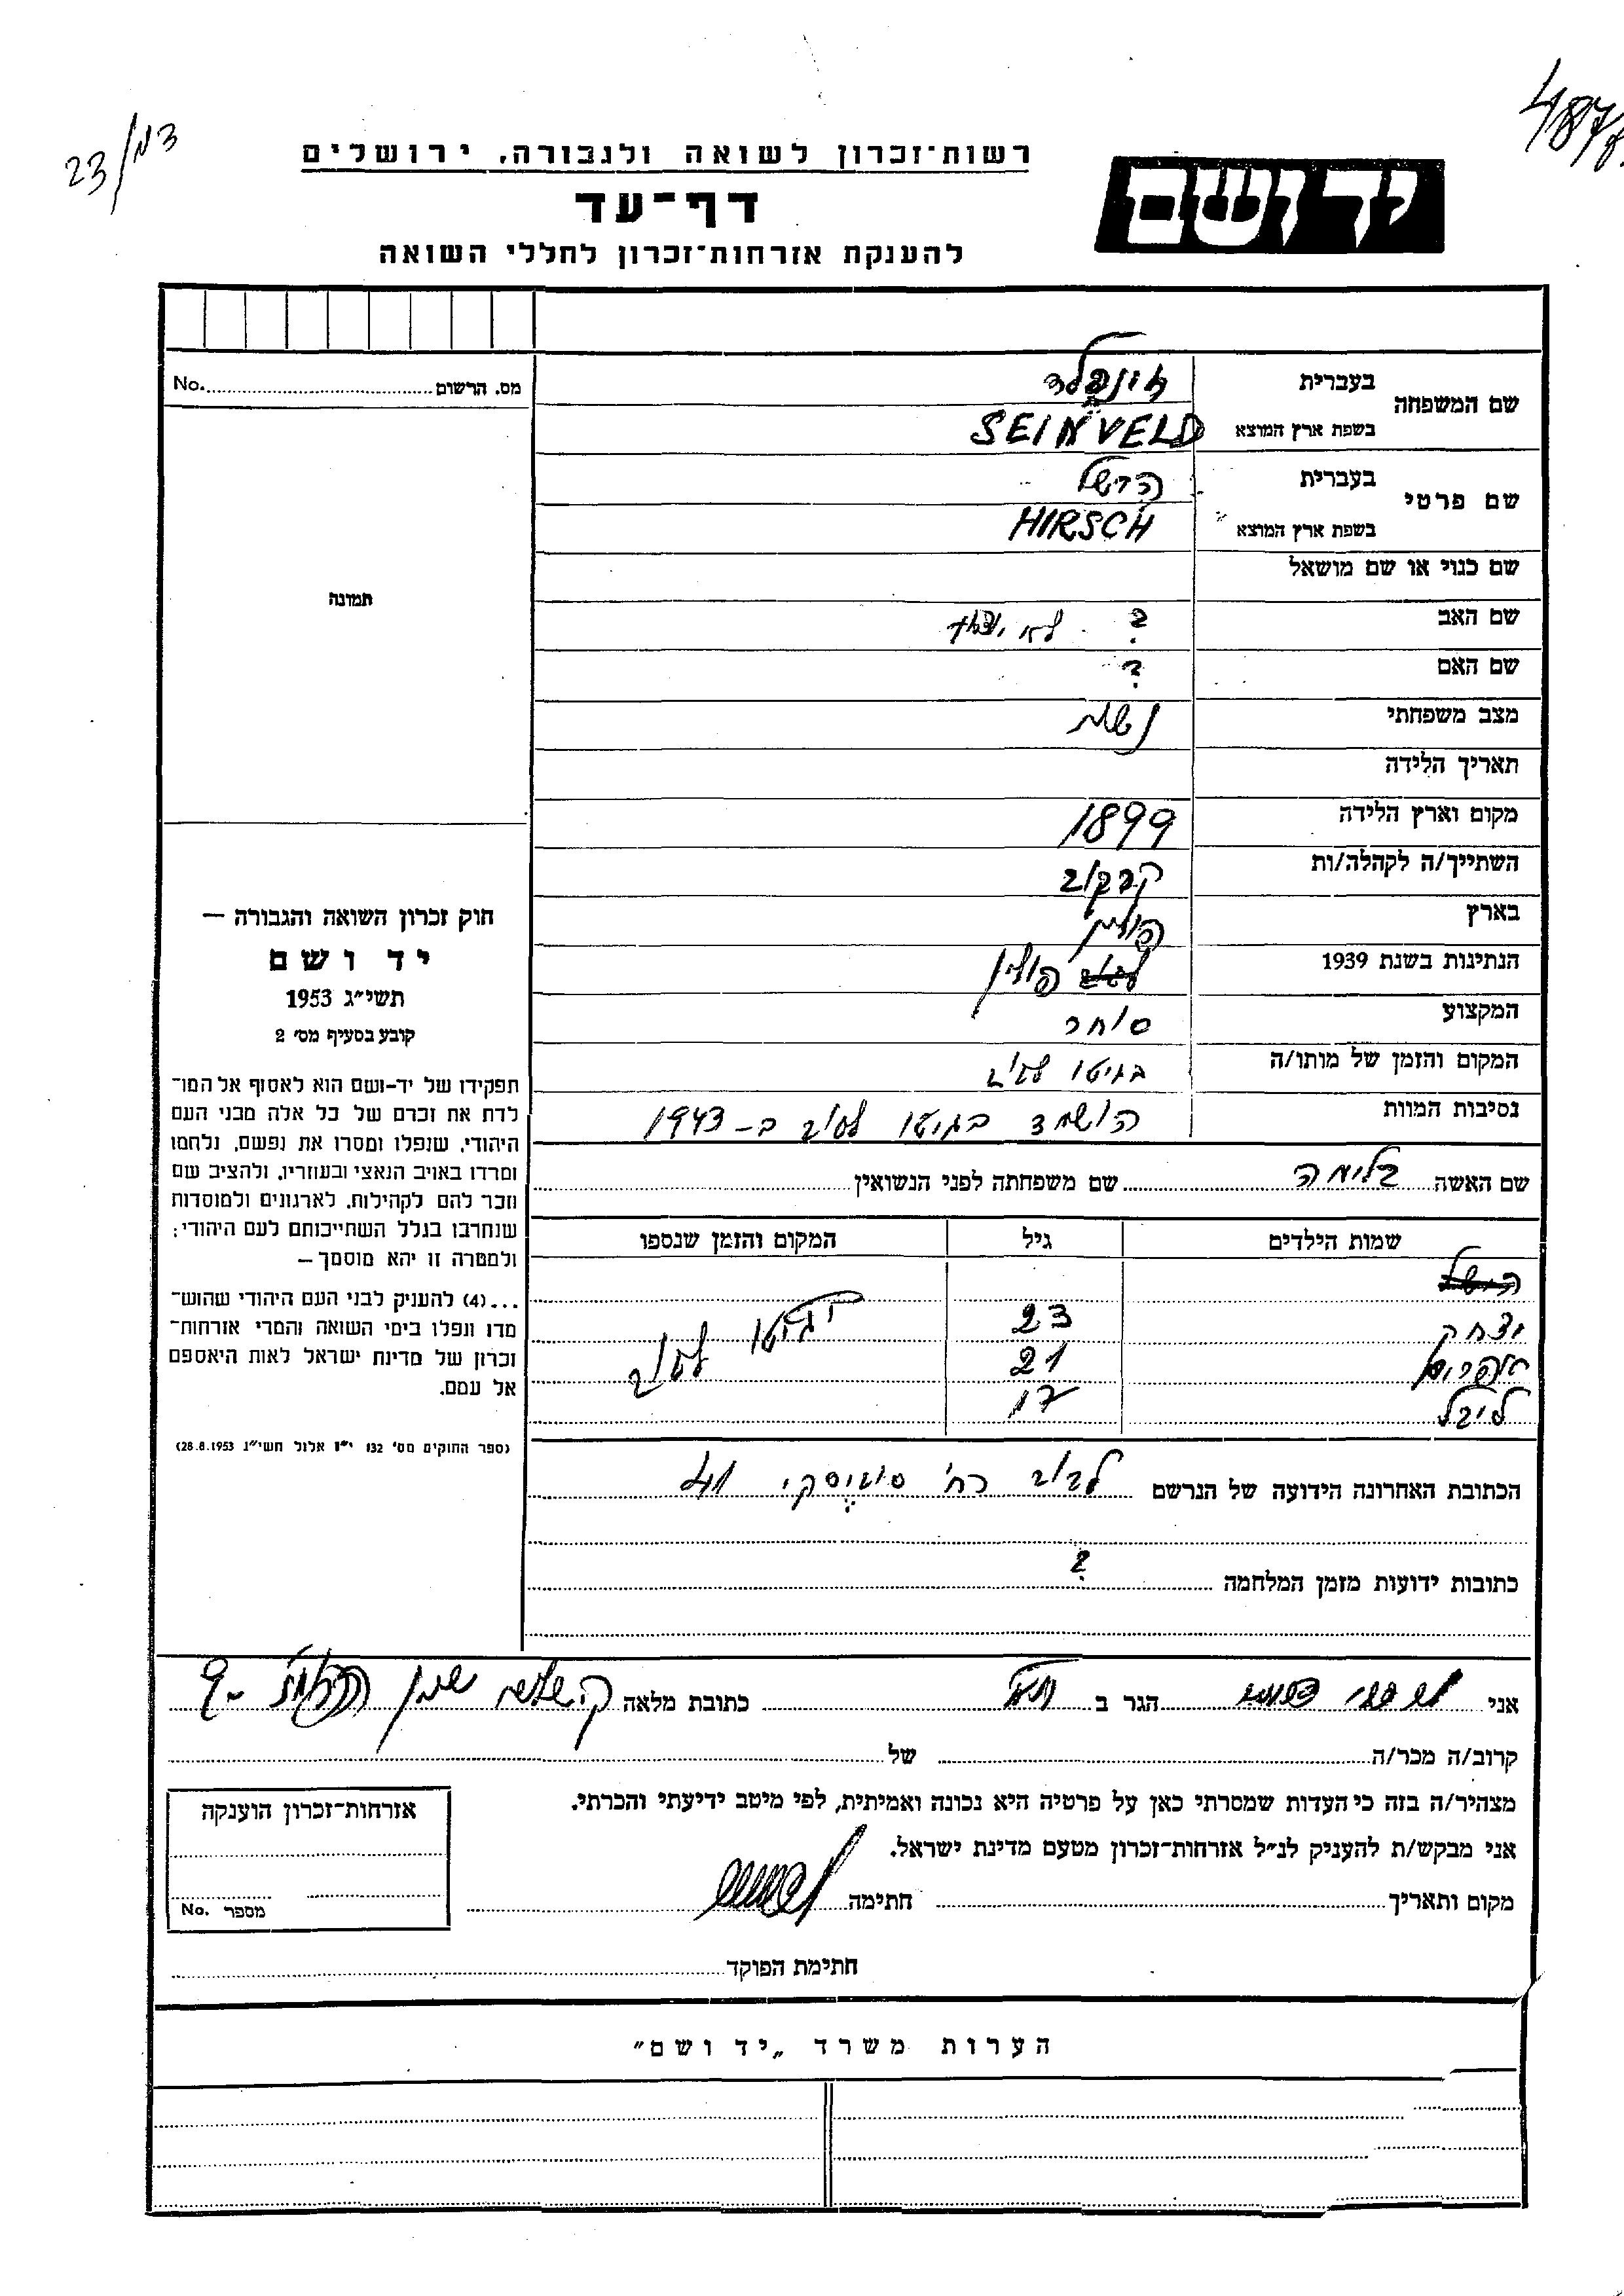 23/נ13
4878
רשות־זכרון לשואה ולגבורה, ירושלים
דף־עד
להענקת אזרחות־זכרון לחללי השואה
יד ושם
שם המשפחה
בעברית
בשפת ארץ המוצא SEINVELD
שם פרטי
בעברית הירשל
בשפת ארץ המוצא HIRSCH
שם כנוי או שם מושאל
שם האב ? לא ידוע
שם האם ?
מצב משפחתי נשוי
תאריך הלידה
מקום וארץ הלידה 1899
השתייך/ה לקהלה/ות קרקוב
בארץ פולין
הנתינות בשנת 1939 פולין
המקצוע סוחר
המקום והזמן של מותו/ה בגיטו לבוב
נסיבות המוות הושמד בגיטו לבוב ב- 1943
שם האשה בלימה שם משפחתה לפני הנשואין
שמות הילדים גיל המקום והזמן שנספו
הירשל
יצחק 23 בגיטו לבוב
אפרים 21
לייבל 17
הכתובת האחרונה הידועה של הנרשם לבוב רח' 41
כתובות ידועות מזמן המלחמה ?
אני הגר ב כתובת מלאה
קרוב/ה מכר/ה של
מצהיר/ה בזה כי העדות שמסרתי כאן על פרטיה היא נכונה ואמיתית, לפי מיטב ידיעתי והכרתי.
אני מבקש/ת להעניק לנ״ל אזרחות־זכרון מטעם מדינת ישראל.
מקום ותאריך חתימה
חתימת הפוקד
מס. הרשום No.
תמונה
חוק זכרון השואה והגבורה —
יד ושם
תשי״ג 1953
קובע בסעיף מס׳ 2
תפקידו של יד-ושם הוא לאסוף אל המו־
לדת את זכרם של כל אלה מבני העם
היהודי, שנפלו ומסרו את נפשם, נלחמו
ומרדו באויב הנאצי ובעוזריו, ולהציב שם
וזכר להם לקהילות, לארגונים ולמוסדות
שנחרבו בגלל השתייכותם לעם היהודי;
ולמטרה זו יהא מוסמך —
...(4) להעניק לבני העם היהודי שהוש־
מדו ונפלו בימי השואה והמרי אזרחות־
זכרון של מדינת ישראל לאות היאספם
אל עמם.
(ספר החוקים מס׳ 132 י״ז אלול תשי״ג 28.8.1953)
אזרחות־זכרון הוענקה
מספר No.
הערות משרד „יד ושם״